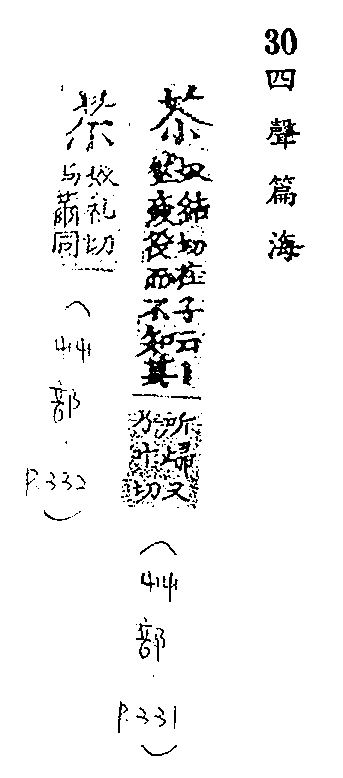 30
四聲篇海
苶
奴結切庄子云丨
然疲役而不知其
所歸又
乃叶切
(艸部．P.331)
苶
奴礼切
与薾同
(艸部．P.332)